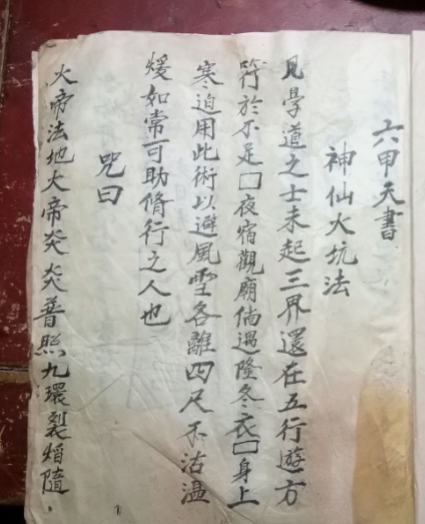 六甲天書
神仙火坑法
凡學道之士未起三界還在五行遊方
符於不足□夜宿觀廟倘遇隆冬衣□身上
寒迫用此術以避風雪各離四尺不沾温
煖如常可助脩行之人也
咒曰
火帝法地大帝炎炎普照九環裂焰隨